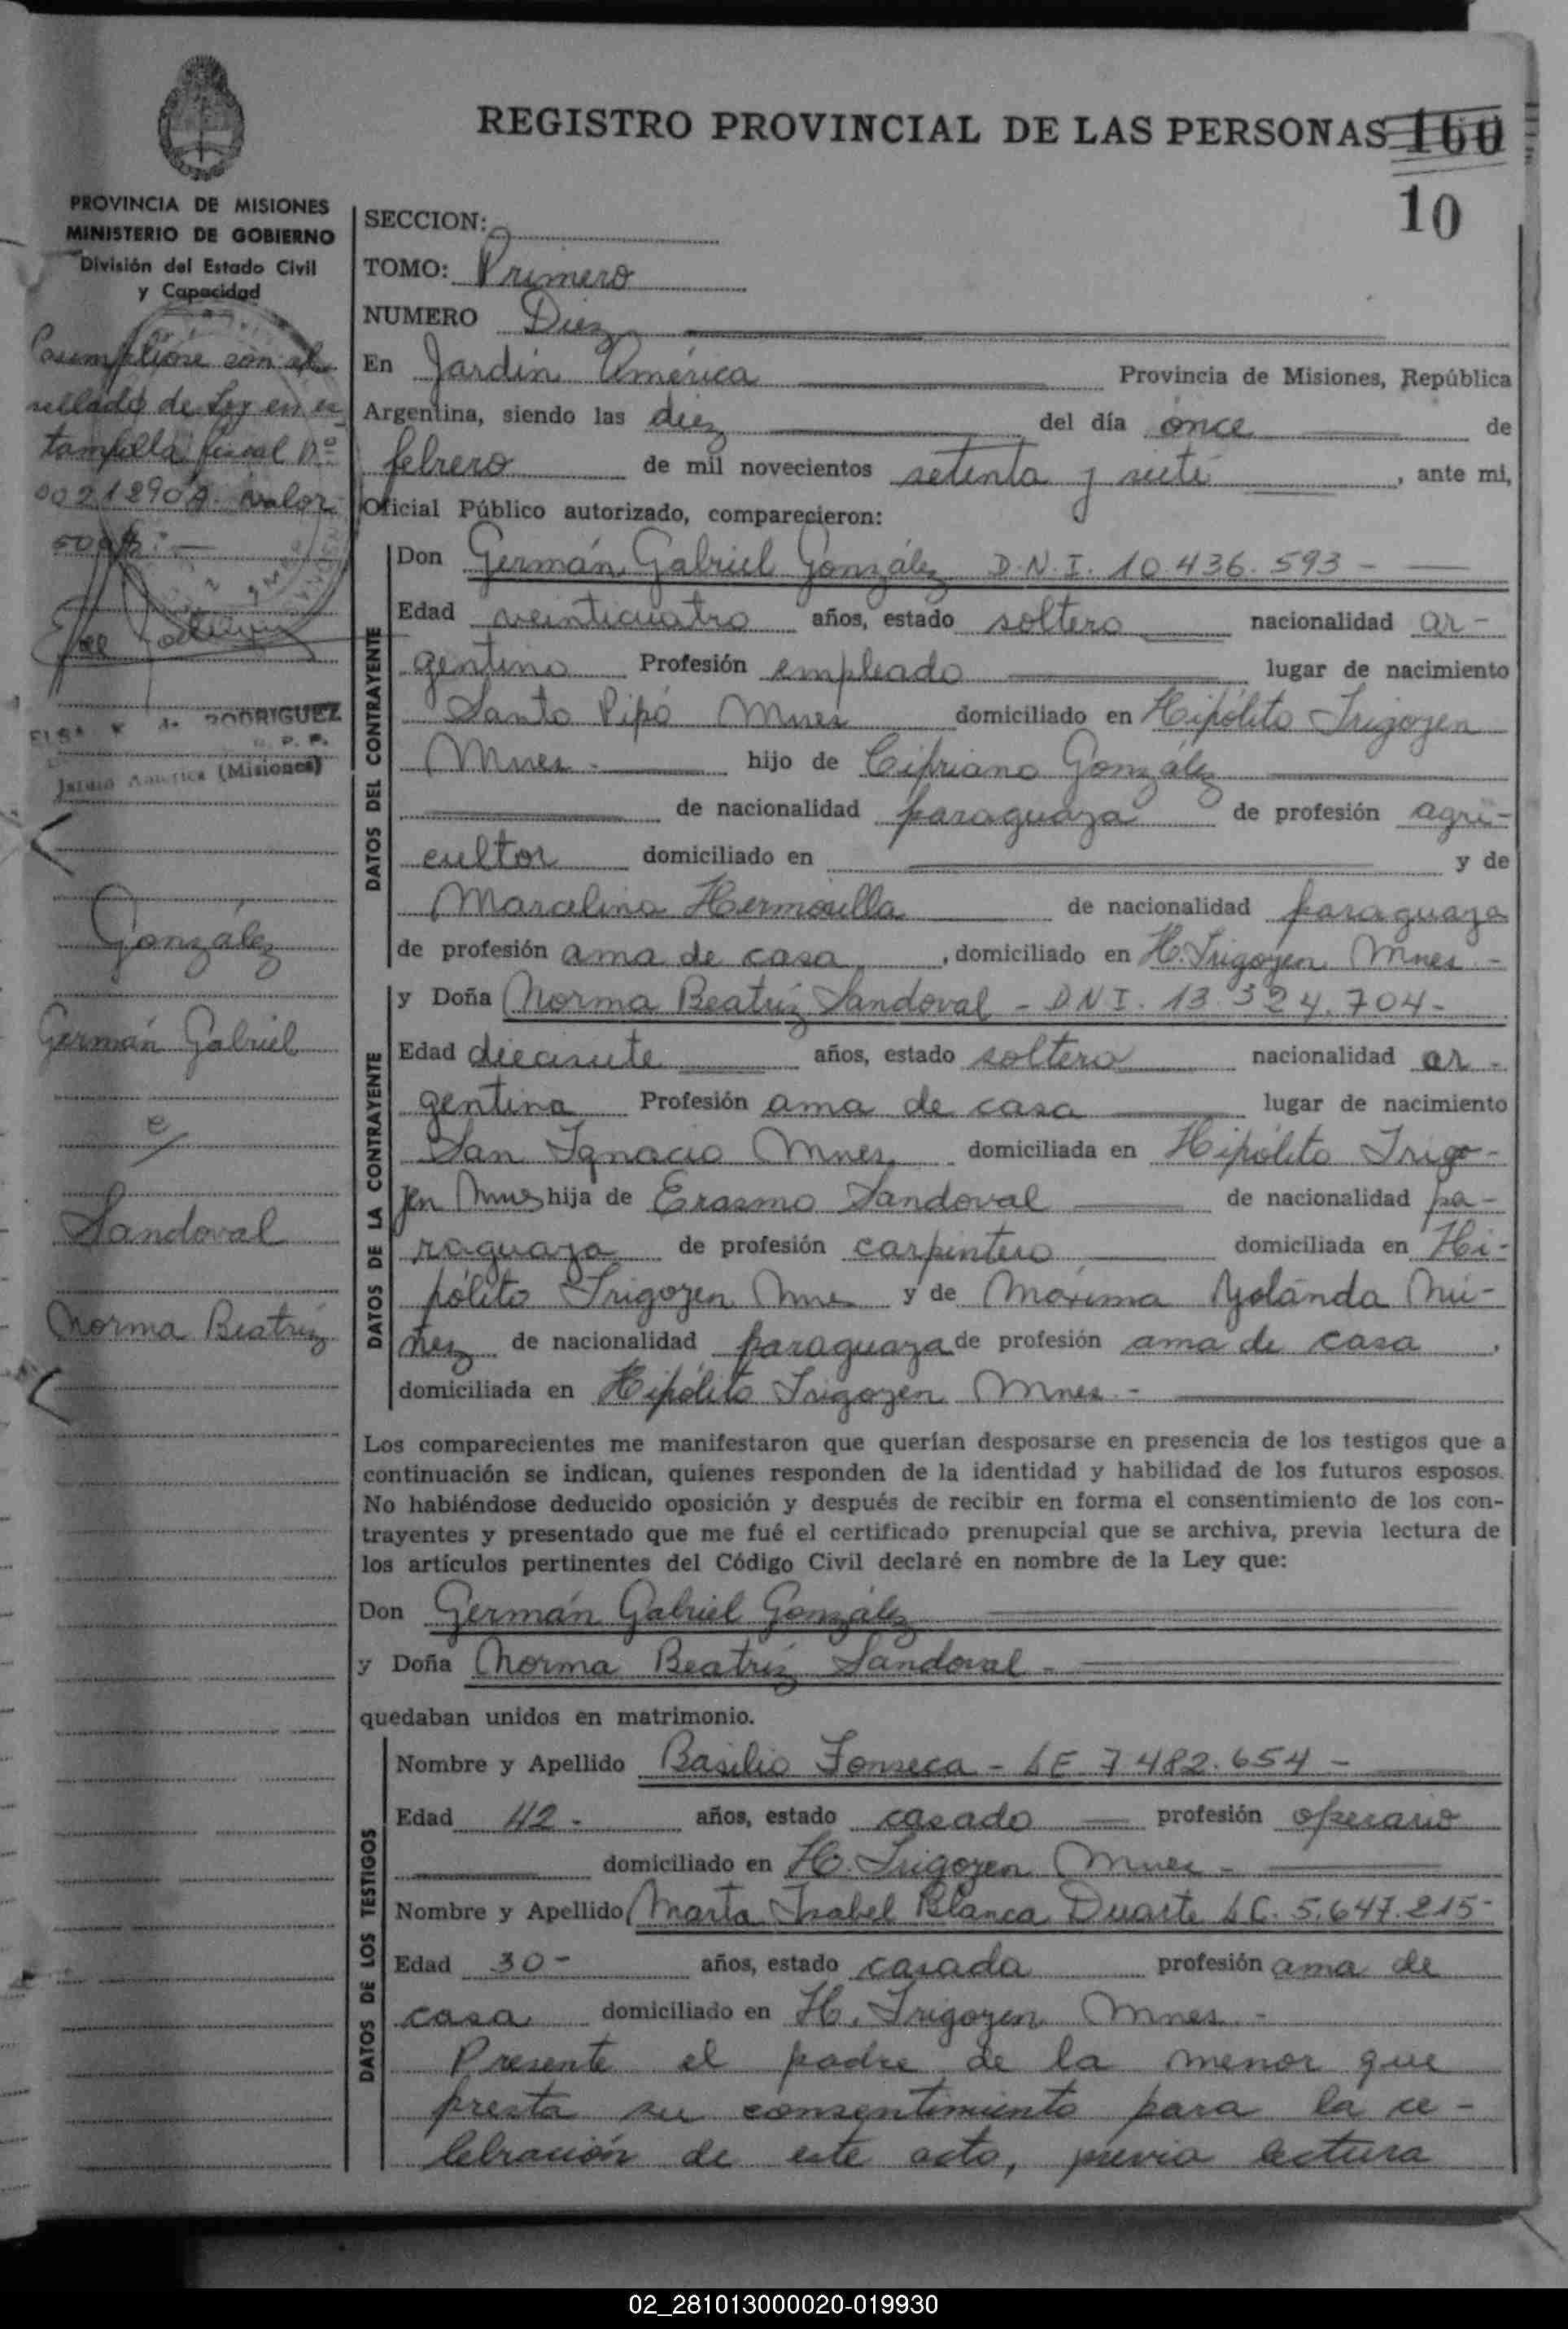 REGISTRO PROVINCIAL DE LAS PERSONAS 160
10
PROVINCIA DE MISIONES
MINISTERIO DE GOBIERNO
División del Estado Civil
y Capacidad
con el
sellado de Ley en es
tampilla fiscal Nº
valor
RODRIGUEZ
(Misiones)
González
Germán Gabriel
c/
Sandoval
Norma Beatriz
SECCION:
TOMO: Primero
NUMERO Diez
En Jardín América Provincia de Misiones, República
Argentina, siendo las diez del día once de
febrero de mil novecientos setenta y siete, ante mi,
Oficial Público autorizado, comparecieron:
DATOS DEL CONTRAYENTE
Don Germán Gabriel González D.N.I. 10.436.593 -
Edad veinticuatro años, estado soltero nacionalidad ar-
gentino Profesión empleado lugar de nacimiento
Santo Pipó Mnes domiciliado en Hipólito Irigoyen
Mnes - hijo de Cipriano González
de nacionalidad paraguaya de profesión agri-
cultor domiciliado en y de
Marcelina de nacionalidad paraguaya
de profesión ama de casa, domiciliado en H. Irigoyen Mnes -
DATOS DE LA CONTRAYENTE
y Doña Norma Beatriz Sandoval - D.N.I. 13.324.704 -
Edad diecisiete años, estado soltera nacionalidad ar-
gentina Profesión ama de casa lugar de nacimiento
San Ignacio Mnes domiciliada en Hipólito Irigo-
yen Mnes hija de Erasmo Sandoval de nacionalidad pa-
raguaya de profesión carpintero domiciliada en Hi-
pólito Irigoyen Mnes y de Máxima Yolanda Nú-
ñez de nacionalidad paraguaya de profesión ama de casa,
domiciliada en Hipólito Irigoyen Mnes -
Los comparecientes me manifestaron que querían desposarse en presencia de los testigos que a
continuación se indican, quienes responden de la identidad y habilidad de los futuros esposos.
No habiéndose deducido oposición y después de recibir en forma el consentimiento de los con-
trayentes y presentado que me fué el certificado prenupcial que se archiva, previa lectura de
los artículos pertinentes del Código Civil declaré en nombre de la Ley que:
Don Germán Gabriel González
y Doña Norma Beatriz Sandoval -
quedaban unidos en matrimonio.
DATOS DE LOS TESTIGOS
Nombre y Apellido Basilio Fonseca - LE 7.482.654 -
Edad 42 - años, estado casado profesión operario
domiciliado en H. Irigoyen Mnes -
Nombre y Apellido Marta Isabel Blanca Duarte LC. 5.647.215 -
Edad 30 - años, estado casada profesión ama de
casa domiciliado en H. Irigoyen Mnes -
Presente el padre de la menor que
presta su consentimiento para la ce-
lebración de este acto, previa lectura
02_281013000020-019930